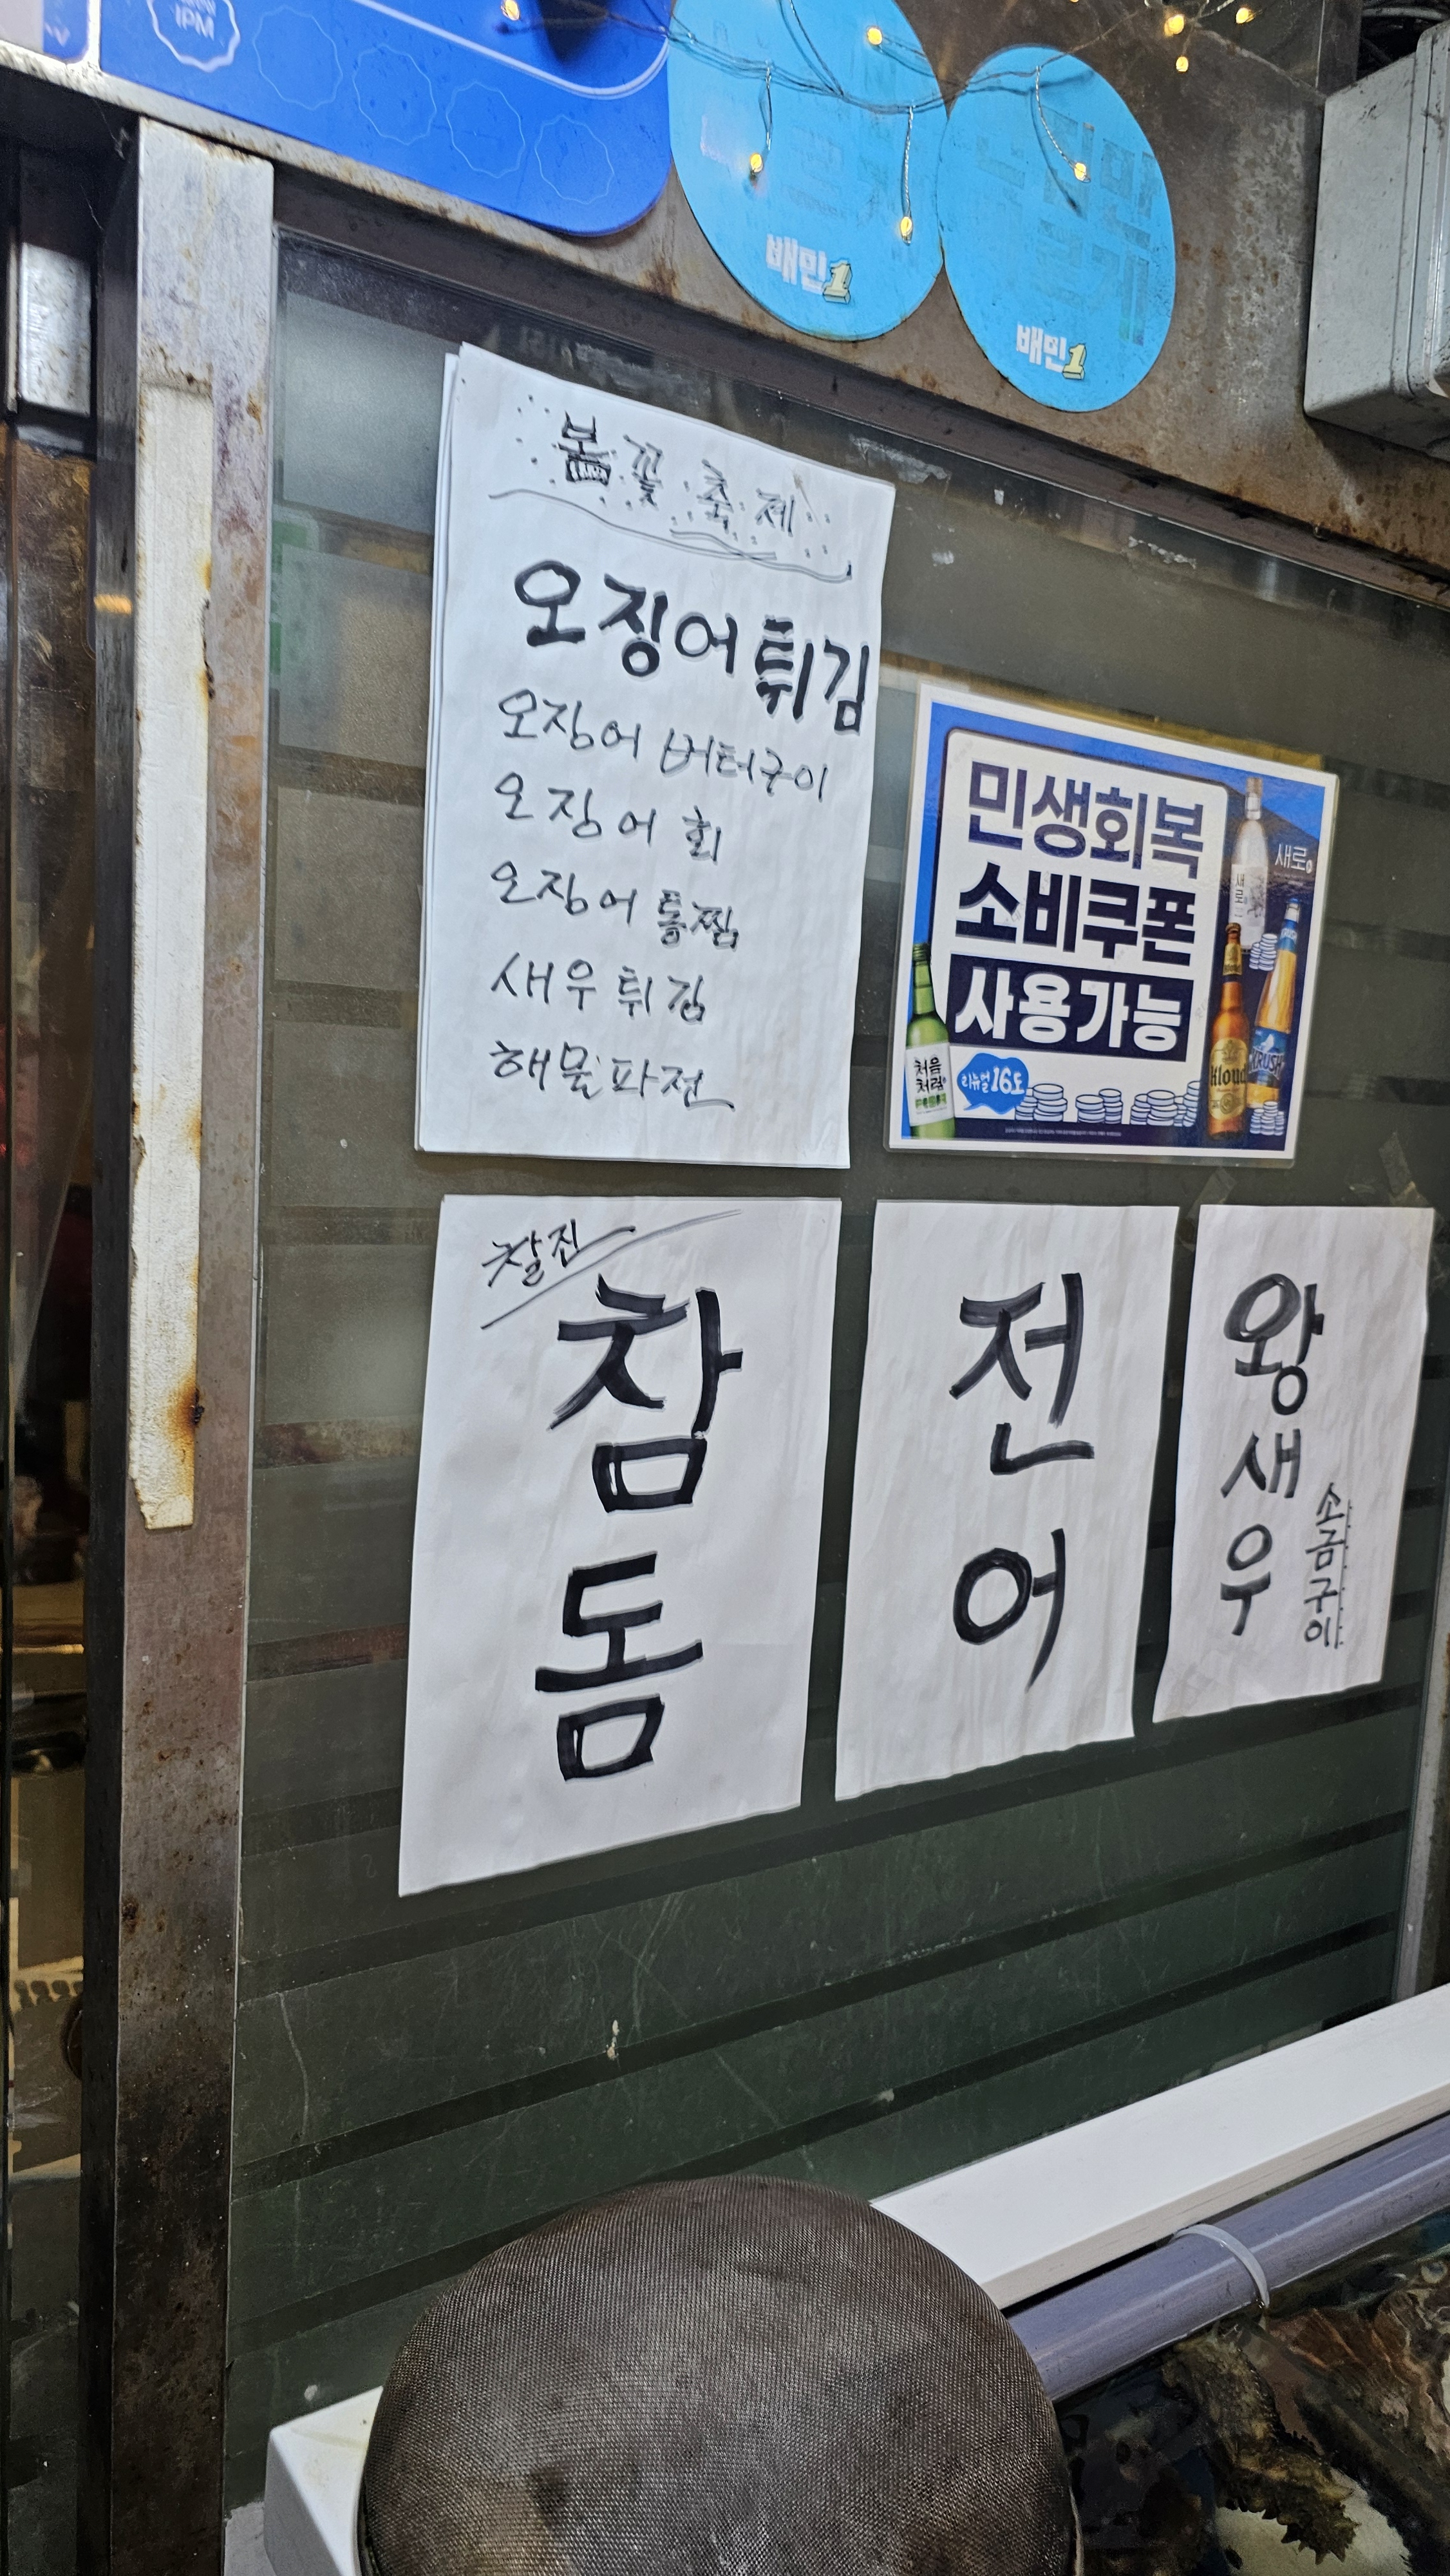 IPM
배민1
배민1
봄꽃 축제
오징어 튀김
오징어 버터구이
오징어 회
오징어 통찜
새우 튀김
해물파전
민생회복
소비쿠폰
사용가능
새로
새로
처음
처럼
리뉴얼 16도
Kloud
KRUSH
찰진
참
돔
전
어
왕
새
우
소금구이